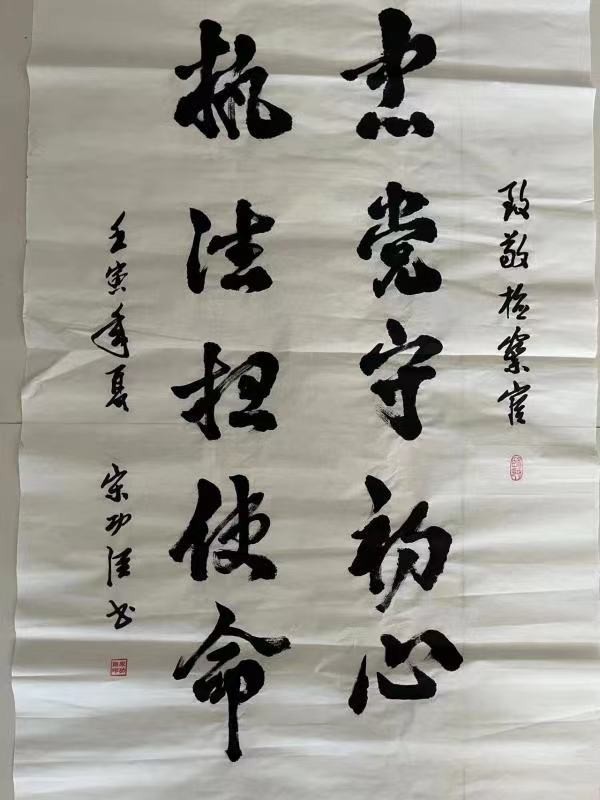 致敬检察官
忠党守初心
执法担使命
壬寅年夏 宋功书